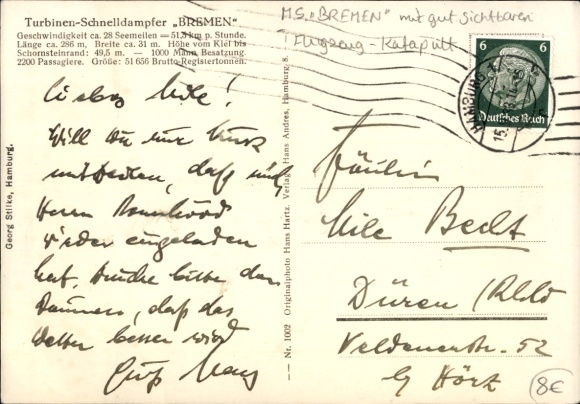 Turbinen-Schnelldampfer „BREMEN“
Geschwindigkeit ca. 28 Seemeilen = 51,5 km p. Stunde.
Länge ca. 286 m, Breite ca. 31 m. Höhe vom Kiel bis
Schornsteinrand: 49,5 m. — 1000 Mann Besatzung.
2200 Passagiere. Größe: 51 656 Brutto-Registertonnen.
M.S. „BREMEN“ mit gut sichtbaren
Flugzeug-Katapult
6 6
Deutsches Reich
HAMBURG
15.
Liebes Mile!
Will Du nur kurz
mitteilen, daß mich
Herrn
wieder eingeladen
hat. Drücke bitte den
Daumen, daß das
Wetter besser wird
Gruß
Georg Stilke, Hamburg.
— Nr. 1002 Originalphoto Hans Hartz. Verlag Hans Andres, Hamburg 8. —
Fräulein
Mile Becht
Düren (Rhld
Veldenerstr. 52
b/ Hörz
8€